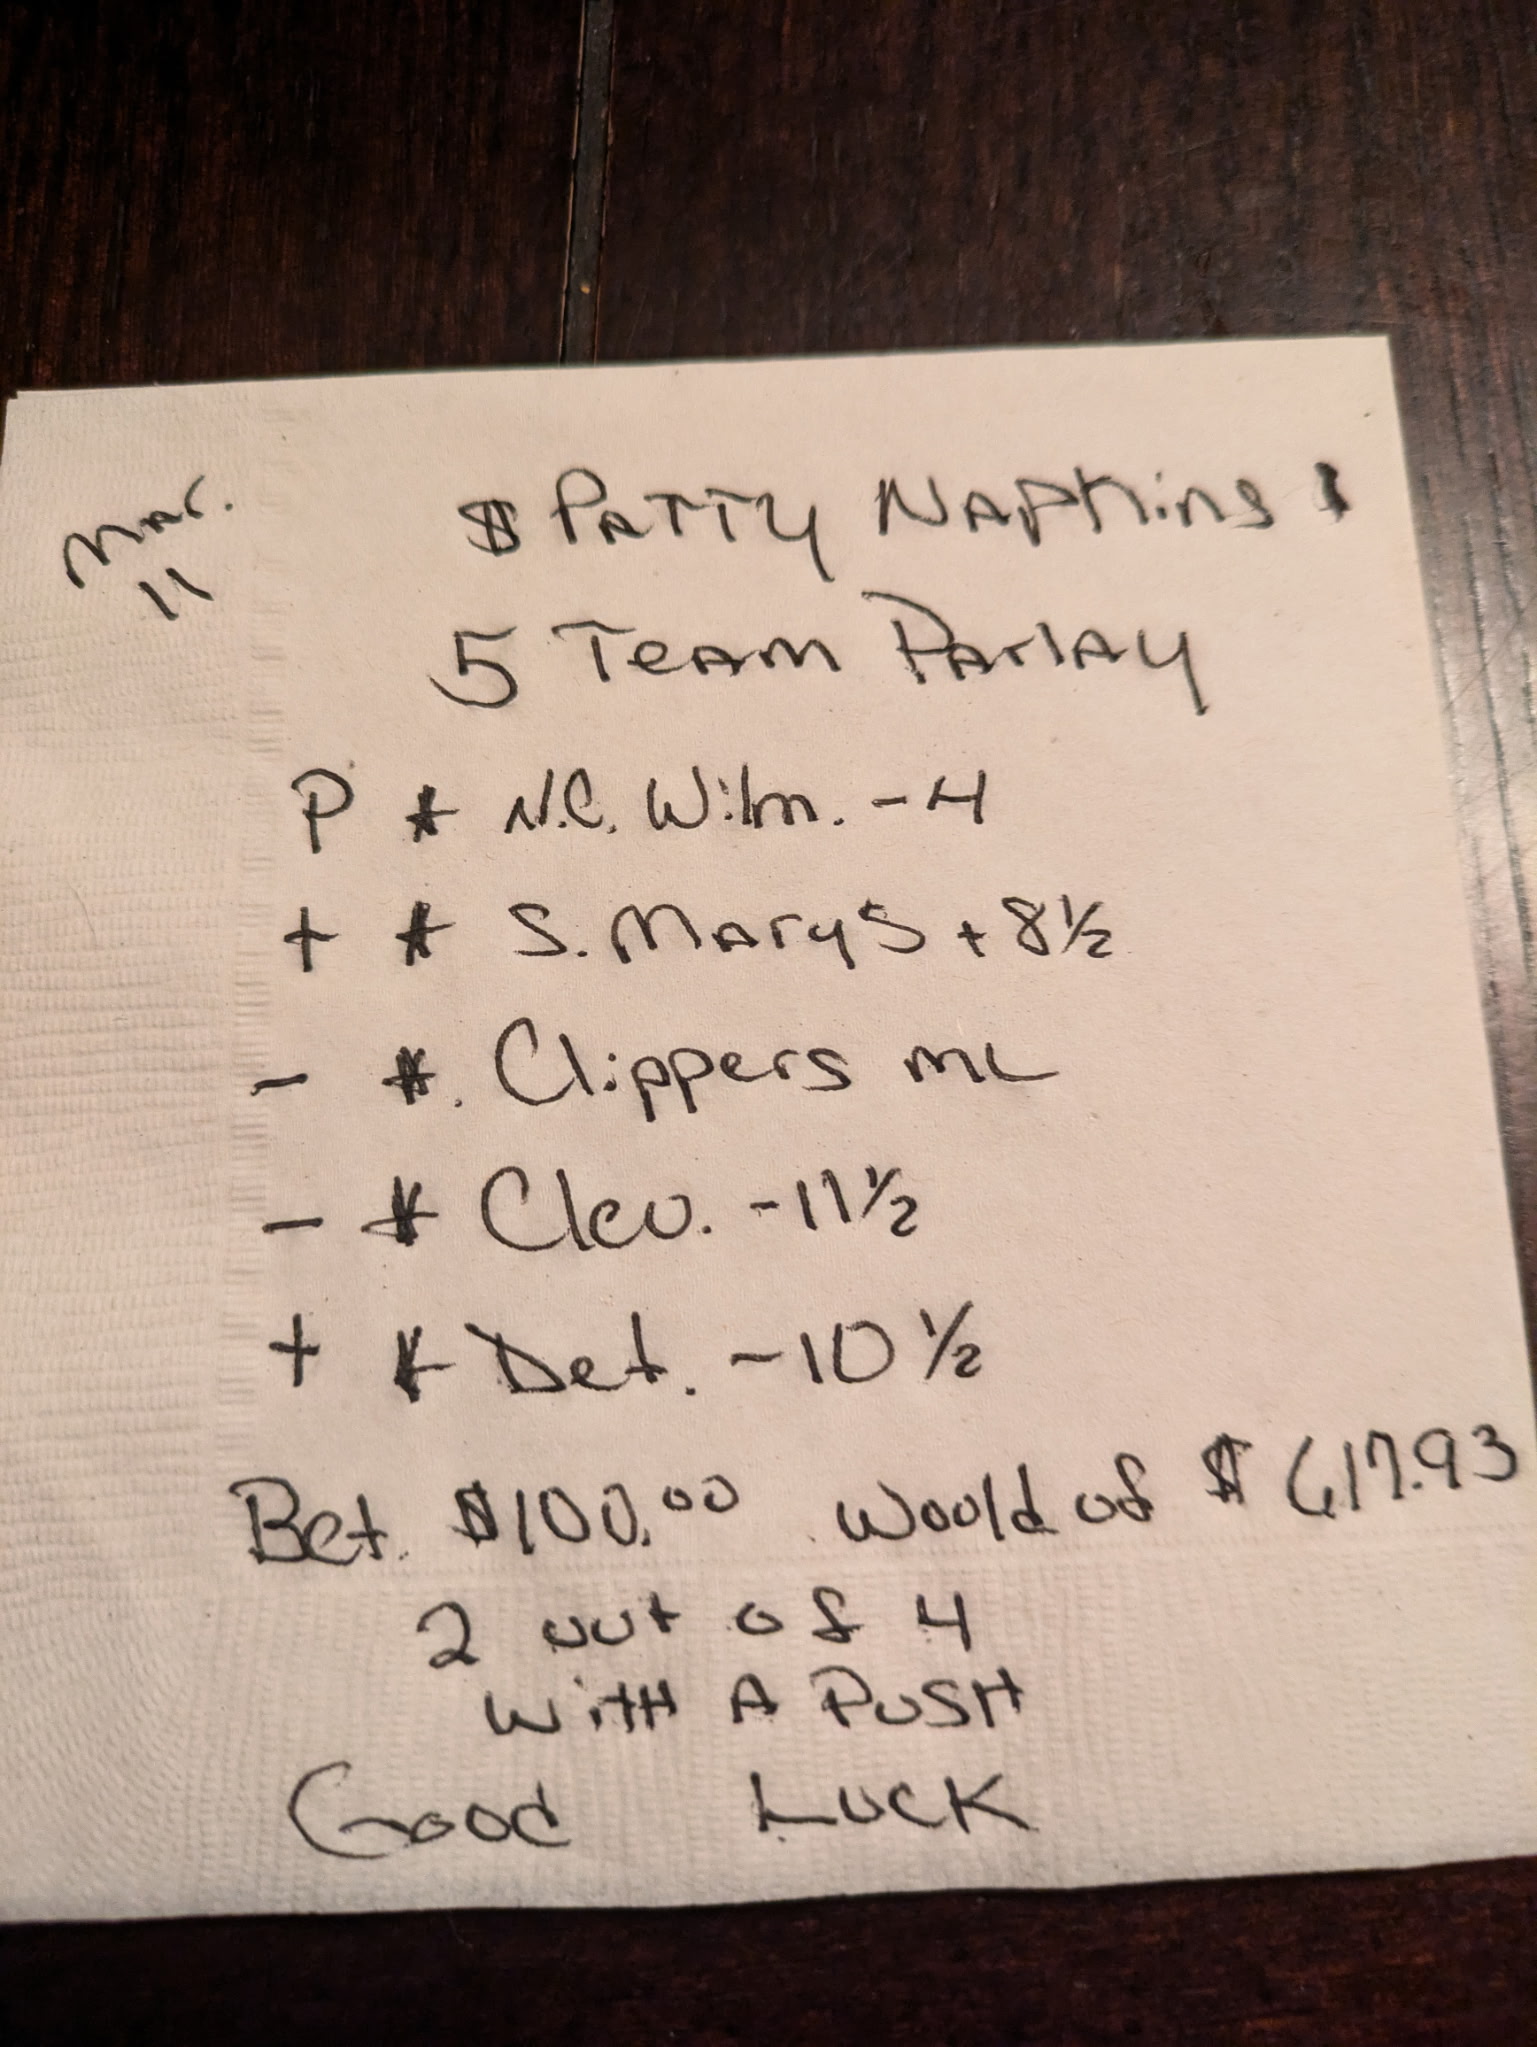 Mar. 11
$ Patty Napkins $
5 Team Parlay
P * N.C. Wilm. -4
+ * S. Marys +8½
- *. Clippers ML
- * Clev. -11½
+ * Det. -10½
Bet. $100.00 Would of $617.93
2 out of 4
With A Push
Good Luck